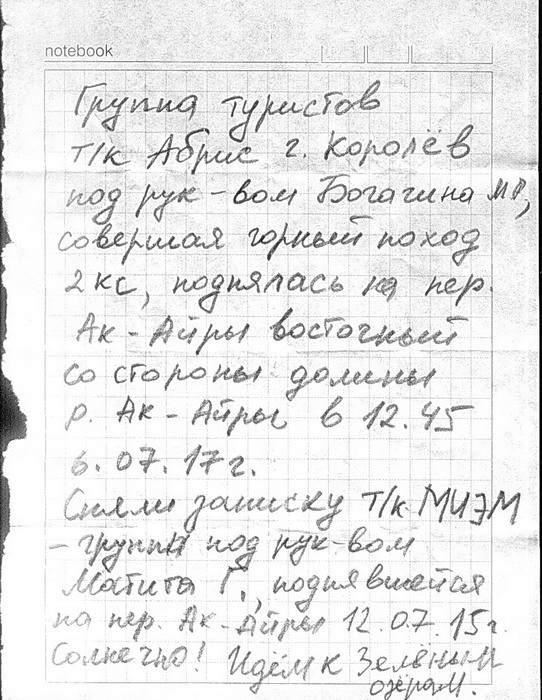 notebook
Группа туристов
т/к Абрис г. Королёв
под рук-вом Богачина МР,
совершая горный поход
2 кс, поднялась на пер.
Ак-Айры восточный
со стороны долины
р. Ак-Айры в 12.45
6.07.17г.
Сняли записку т/к МИЭМ
- группы под рук-вом
Матита Г., поднявшейся
на пер. Ак-Айры 12.07.15г.
Солнечно! Идём к Зелёным
озёрам.